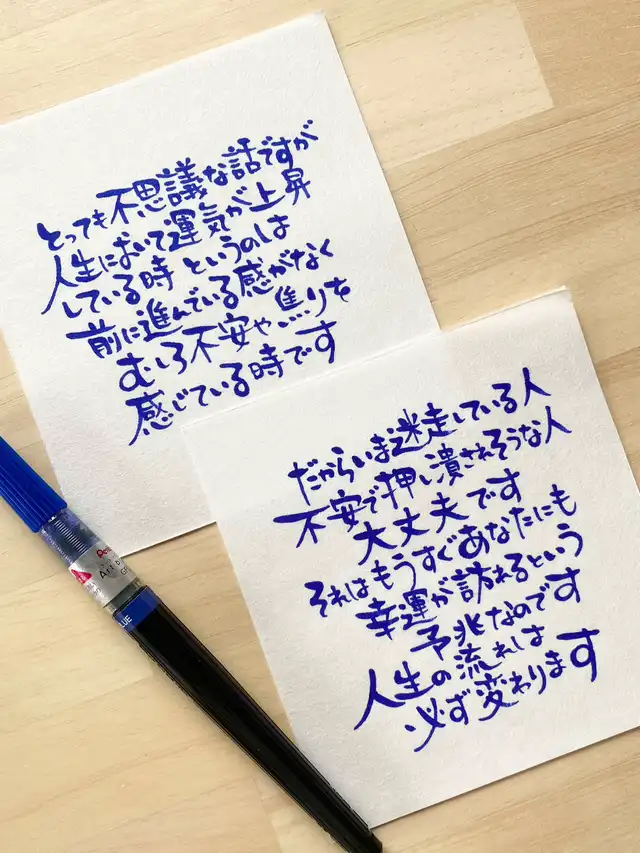 とっても不思議な話ですが
人生において運気が上昇
している時というのは
前に進んでいる感がなく
むしろ不安や焦りを
感じている時です
だからいま迷走している人
不安で押し潰されそうな人
大丈夫です
それはもうすぐあなたにも
幸運が訪れるという
予兆なのです
人生の流れは
必ず変わります
BLUE